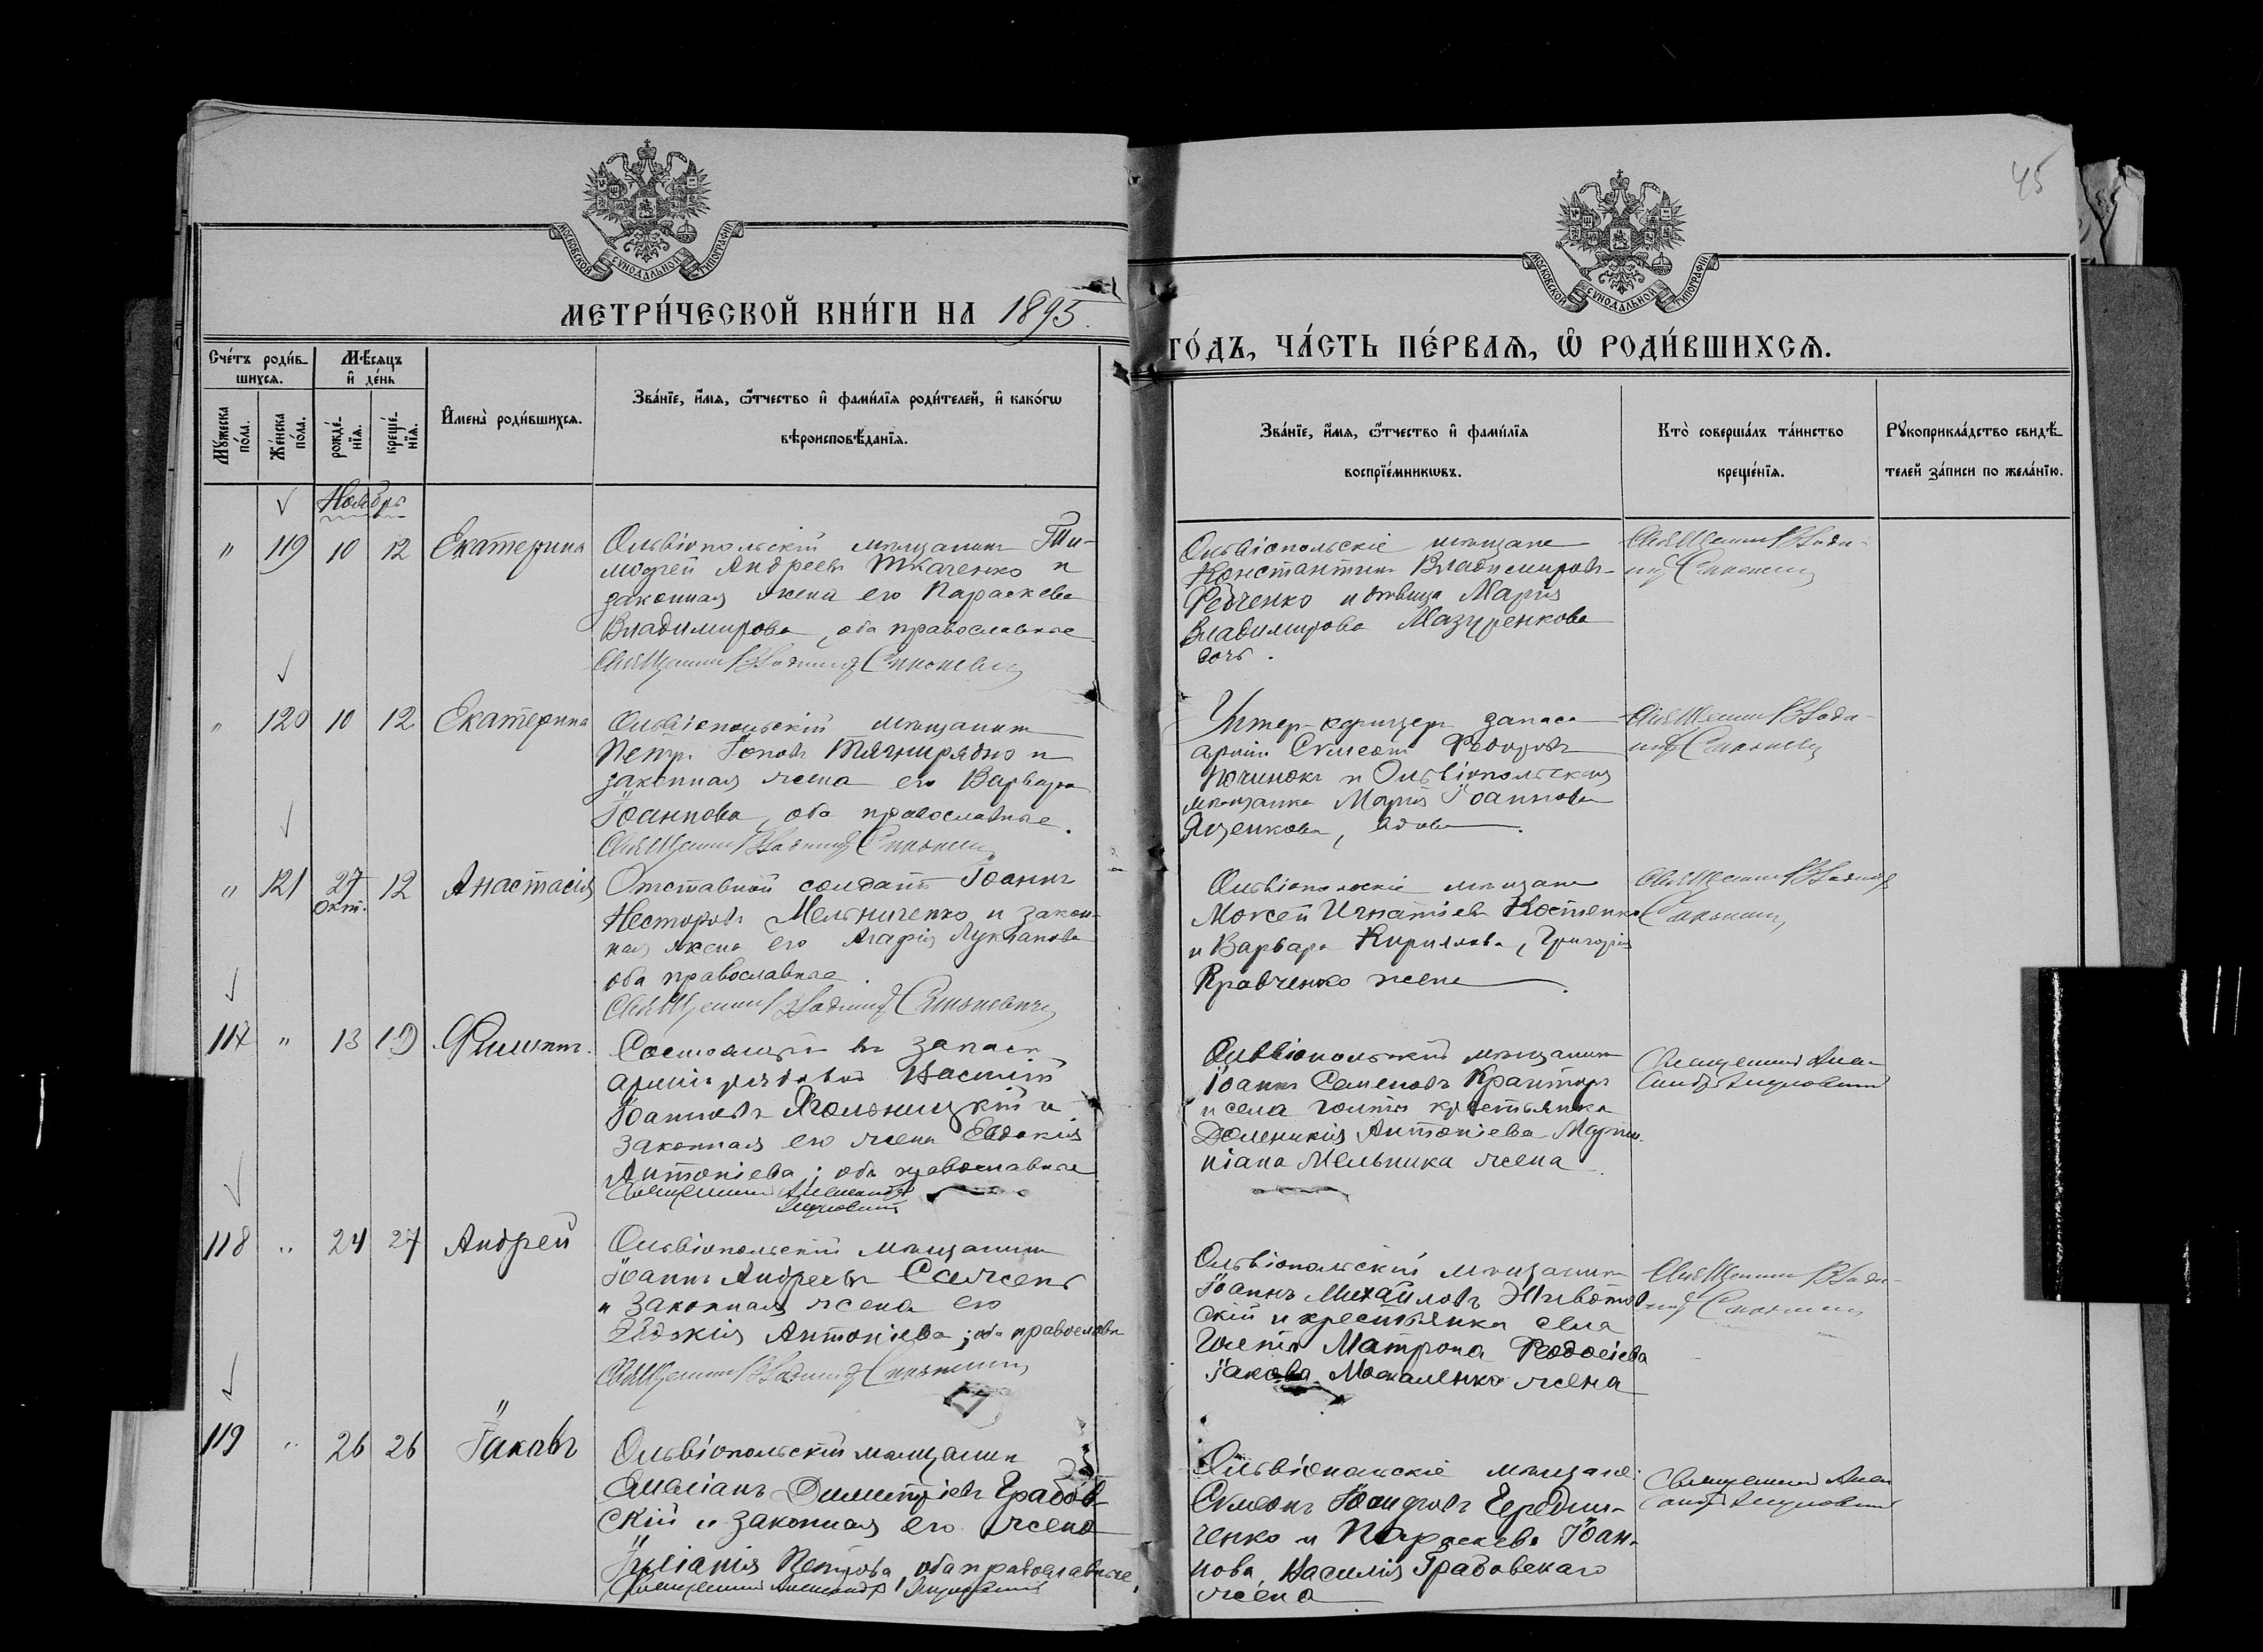 45
МОСКОВСКОЙ СѴНОДАЛЬНОЙ ТИПОГРАФІИ
МОСКОВСКОЙ СѴНОДАЛЬНОЙ ТИПОГРАФІИ
МЕТРИ́ЧЕСКОЙ КНИ́ГИ НА 1895.
ГО́ДЪ, ЧА́СТЬ ПЕ́РВАѦ, Ѡ РОДИ́ВШИХСѦ.
Сче́тъ роди́вшихсѧ.
Мѣ́сѧцъ и҆ де́нь
Мꙋ́жеска по́ла.
Же́нска по́ла.
рожде́нїѧ.
креще́нїѧ.
И҆мена̀ роди́вшихсѧ.
Зва́нїе, и҆́мѧ, ѻ҆́тчество и҆ фами́лїѧ роди́телей, и҆ како́гѡ
вѣроисповѣ́данїѧ.
Зва́нїе, и҆́мѧ, ѻ҆́тчество и҆ фами́лїѧ
воспрїе́мникѡвъ.
Кто̀ соверша́лъ та́инство
креще́нїѧ.
Рꙋкоприкла́дство свидѣ́-
телей за́писи по жела́нїю.
Ноябрь
" 119 10 12 Екатерина
Ольвіопольскій мѣщанинъ Ти-
мофей Андреевъ Ткаченко и
законная жена его Параскева
Владимирова, оба православные
Священникъ Владимір
Ольвіопольскіе мѣщане
Константинъ Владимировъ
Федченко и дѣвица Марія
Владимирова Мазуренкова
дочь.
Священникъ Влади-
міръ
" 120 10 12 Екатерина
Ольвіопольскій мѣщанинъ
Петръ Іоновъ Тягнирядно и
законная жена его Варвара
Іоаннова, оба православные.
Священникъ Владимір
Унтер-офицеръ запаса
арміи Симеонъ Федоровъ
Починокъ и Ольвіопольская
мѣщанка Марія Іоаннова
Яценкова, вдова.
Священникъ Влади-
міръ
" 121 27 окт. 12 Анастасія
Отставной солдатъ Іоаннъ
Несторовъ Мельниченко и закон-
ная жена его Агафія Лукіанова
оба православные.
Священникъ Владимір
Ольвіопольскіе мѣщане
Моисей Игнатіевъ Костенко
и Варвара Кириллова, Григорія
Кравченко жена.
Священникъ Владимір
117 " 13 19 Филиппъ.
Состоящій въ запасѣ
арміи рядовой Василій
Іоанновъ и
законная его жена Евдокія
Антоніева; оба православные
Священникъ Александръ
Ольвіопольскій мѣщанинъ
Іоаннъ Семеновъ
и села Голты крестьянка
Домникія Антоніева Марти-
ніана Мельника жена
Священникъ Алек-
сандръ
118 " 24 27 Андрей
Ольвіопольскій мѣщанинъ
Іоаннъ Андреевъ
и законная жена его
Евдокія Антоніева; оба православн
Священникъ Владимір
Ольвіопольскій мѣщанинъ
Іоаннъ Михайловъ Животов
скій и крестьянка села
Голты Матрона Феодосіева
Іакова Москаленко жена
Священникъ Влади-
мір
119 " 26 26 Іаковъ
Ольвіопольскій мѣщанин
Емиліанъ Димитріевъ Грабов-
скій и законная его жена
Іуліанія Петрова, оба православные,
Священникъ Александръ
Ольвіопольскіе мѣщане:
Симеонъ Іосифовъ Чередни-
ченко и Параскева Іоан-
нова, Василія Грабовскаго
жена
Священникъ Алек
сандръ